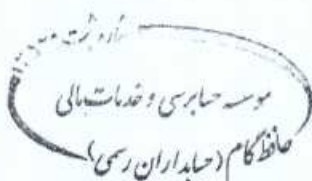 شماره ثبت
موسسه حسابرسی و خدمات مالی
حافظ گام (حسابداران رسمی)